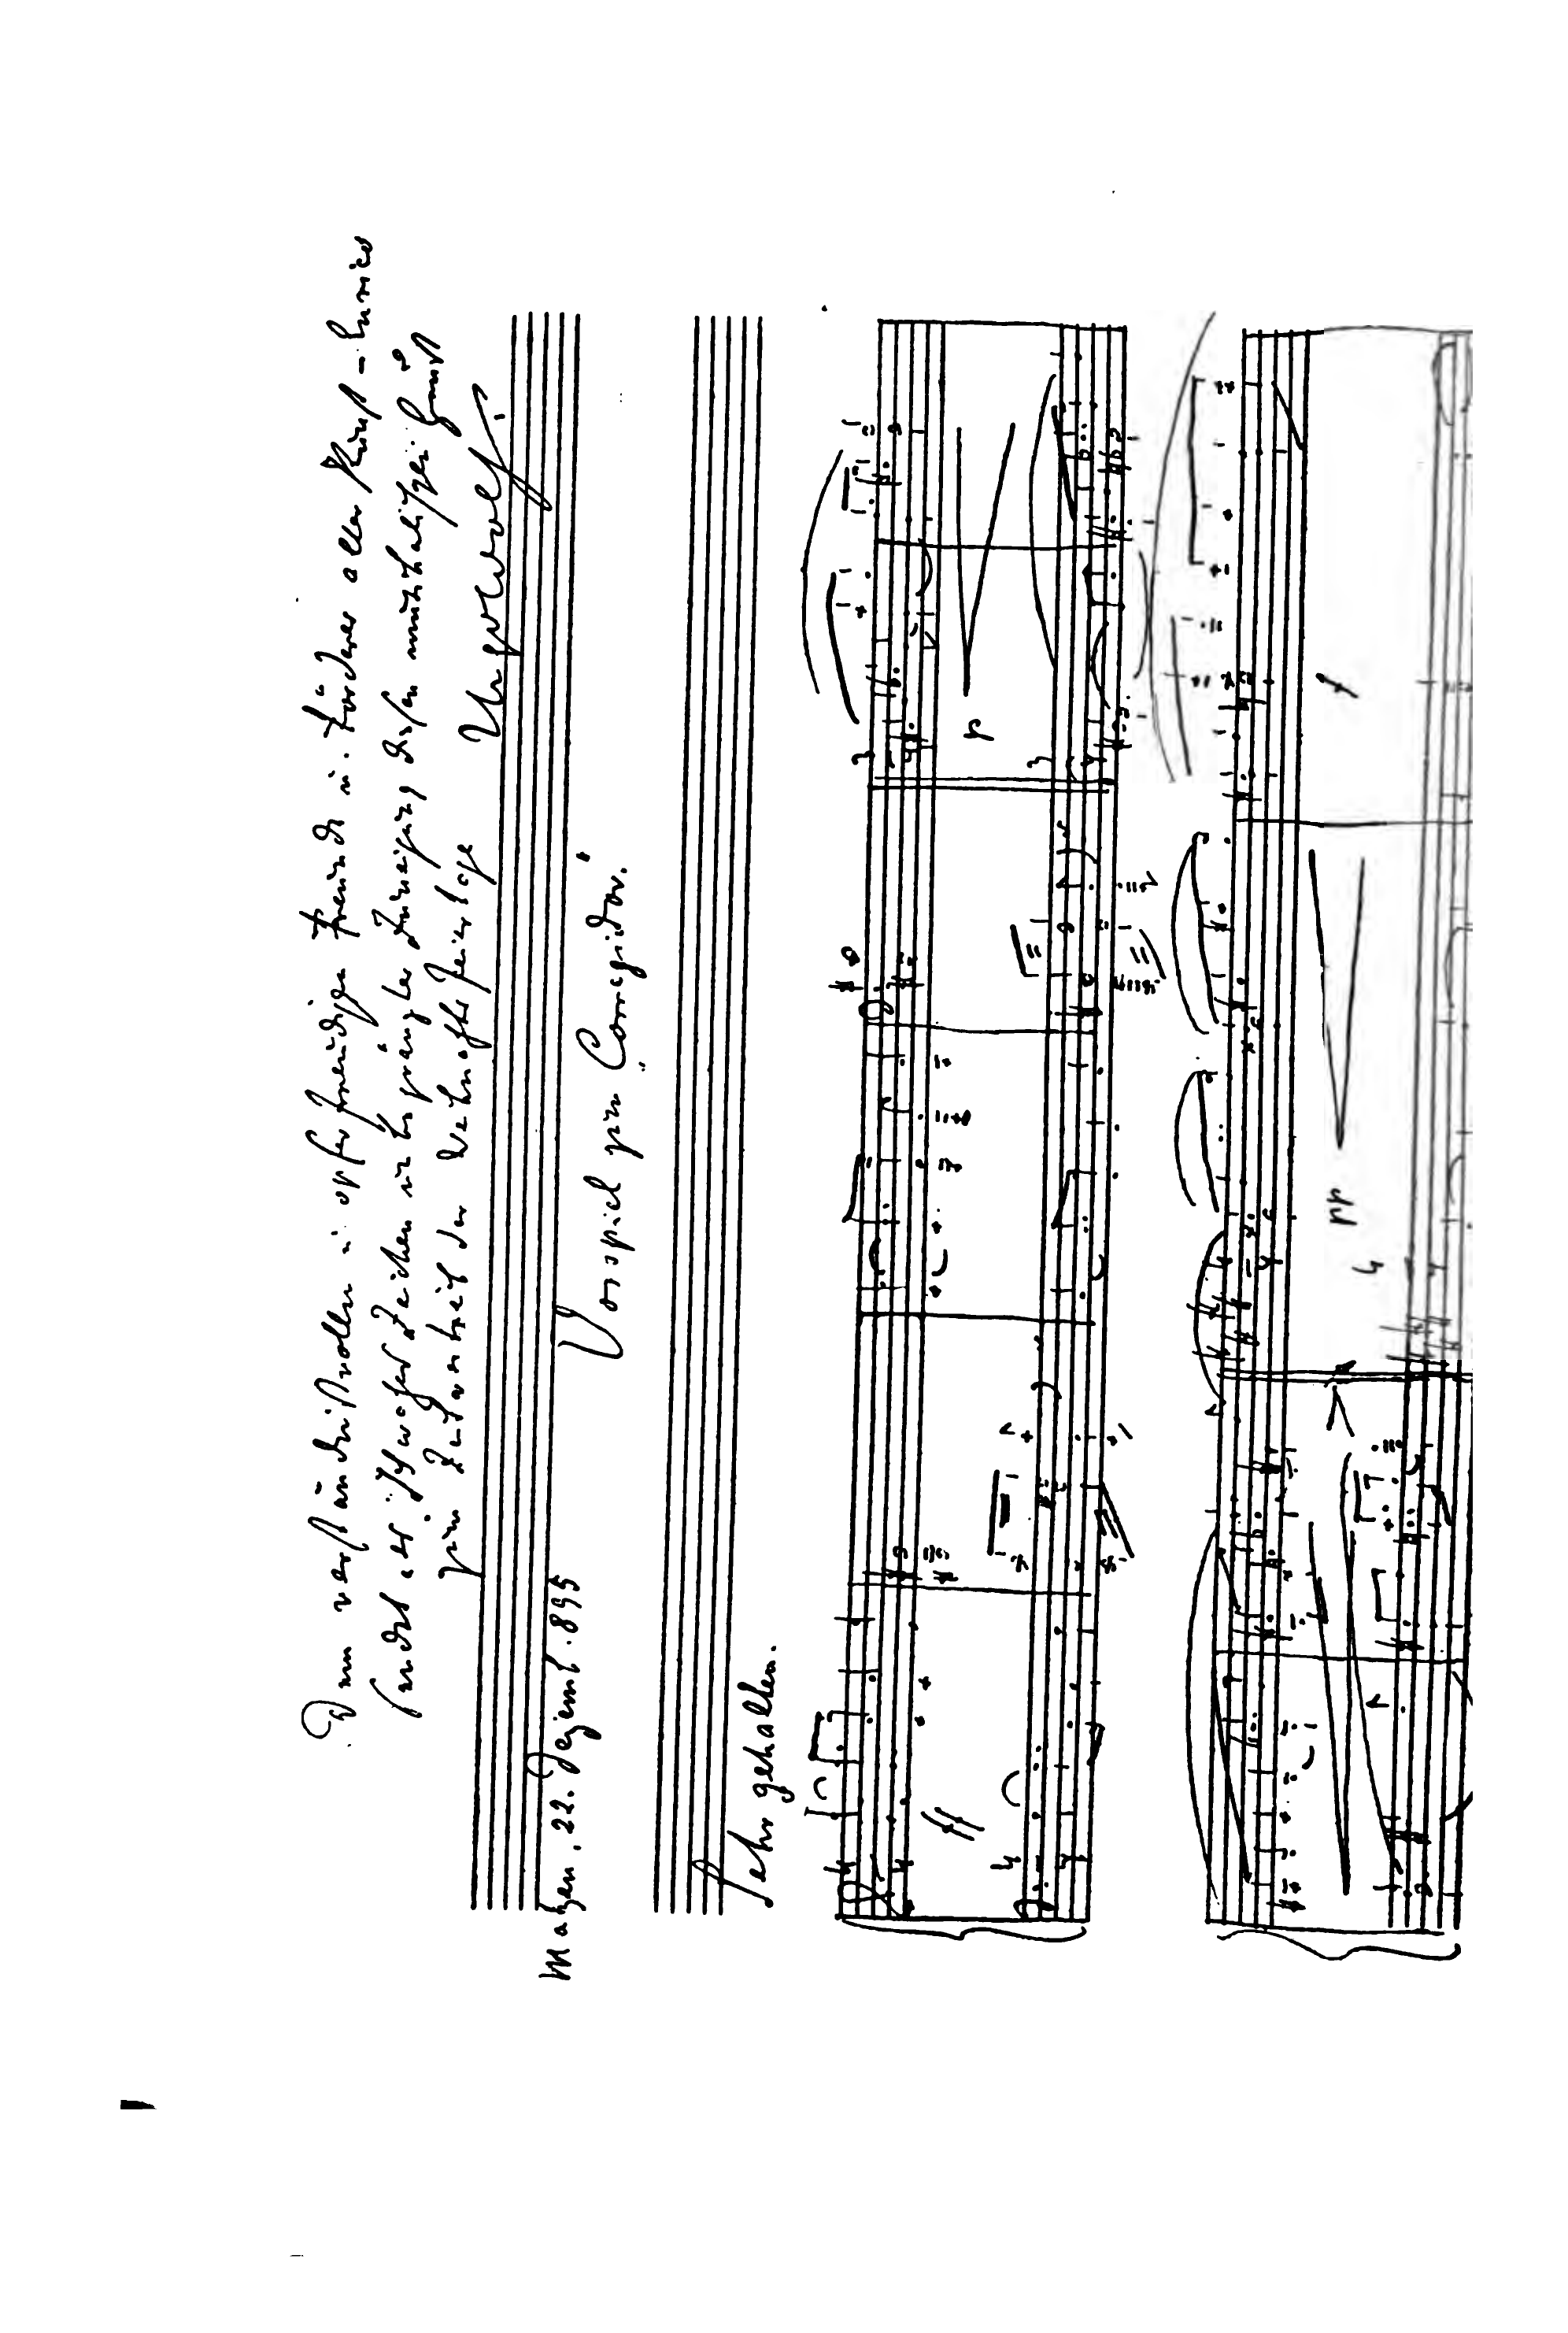 Dem verständnißvollen u. opferfreudigen Freunde u. Förderer alles Kunst-Lurico
sendet als schwaches Zeichen unbegränzter Zuneigung dieses musikalische
zum Zeitvertreib der Weihnachtsfeiertage Hugo Wolf.
Matzen, 22. Dezemb. 895
Vorspiel zum Corregidor.
Sehr gehalten.
ff
p
pp
f